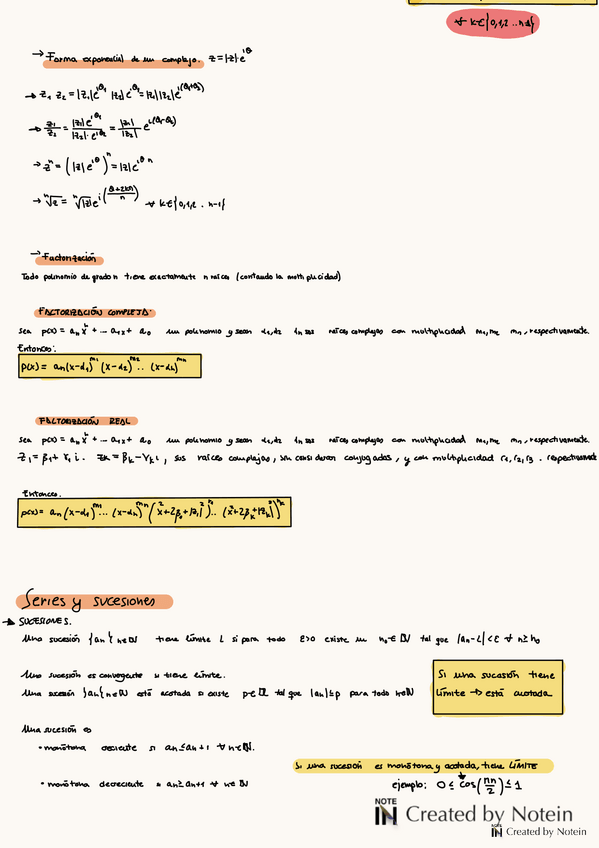 ∀ k∈{0,1,2 ..n-1}
→ Forma exponencial de un complejo. z=|z|·e^{iθ}
→ z₁ z₂ = |z₁|e^{iθ₁} |z₂|e^{iθ₂}=|z₁||z₂|e^{i(θ₁+θ₂)}
→ z₁/z₂ = |z₁|e^{iθ₁}/|z₂|·e^{iθ₂} = |z₁|/|z₂| e^{i(θ₁-θ₂)}
→ zⁿ = (|z|e^{iθ})ⁿ = |z|e^{iθn}
→ ⁿ√z = ⁿ√|z| e^{i((θ+2kπ)/n)} ∀ k∈{0,1,2 .. n-1}
→ Factorización
Todo polinomio de grado n tiene exactamente n raíces (contando la multiplicidad)
FACTORIZACIÓN COMPLEJA:
Sea p(x) = aₙxⁿ + ... a₁x + a₀ un polinomio y sean α₁,α₂ αₙ sus raíces complejas con multiplicidad m₁,m₂ mₙ, respectivamente.
Entonces:
p(x) = aₙ(x-α₁)^{m₁} (x-α₂)^{m₂} .. (x-αₖ)^{mₙ}
FACTORIZACIÓN REAL
Sea p(x) = aₙxⁿ + ... a₁x + a₀ un polinomio y sean α₁,α₂ αₙ sus raíces complejas con multiplicidad m₁,m₂ mₙ, respectivamente.
z₁ = β₁ + γ₁ i. zₖ = βₖ - γₖ i, sus raíces complejas, sin considerar conjugadas, y con multiplicidad r₁, r₂, r₃ . respectivamente
Entonces.
p(x) = aₙ(x-α₁)^{m₁}... (x-αₙ)^{mₙ} (x²+2β₁+|z₁|²)^{r₁}.. (x²+2βₖ+|zₖ|²)^{rₖ}
Series y sucesiones
→ SUCESIONES.
Una sucesión {aₙ} n∈ℕ tiene límite L si para todo ε>0 existe un n₀∈ℕ tal que |aₙ-L|<ε ∀ n≥n₀
Una sucesión es convergente si tiene límite.
Una sucesión {aₙ} n∈ℕ está acotada si existe p∈ℝ tal que |aₙ|≤p para todo n∈ℕ
Si una sucesión tiene
límite → está acotada
Una sucesión es
• monótona creciente si aₙ≤aₙ+1 ∀ n∈ℕ.
Si una sucesión es monótona y acotada, tiene LÍMITE
• monótona decreciente si aₙ≥aₙ+1 ∀ n∈ℕ
ejemplo: 0 ≤ cos(πn/2) ≤ 1
NOTE IN Created by Notein
NOTE IN Created by Notein